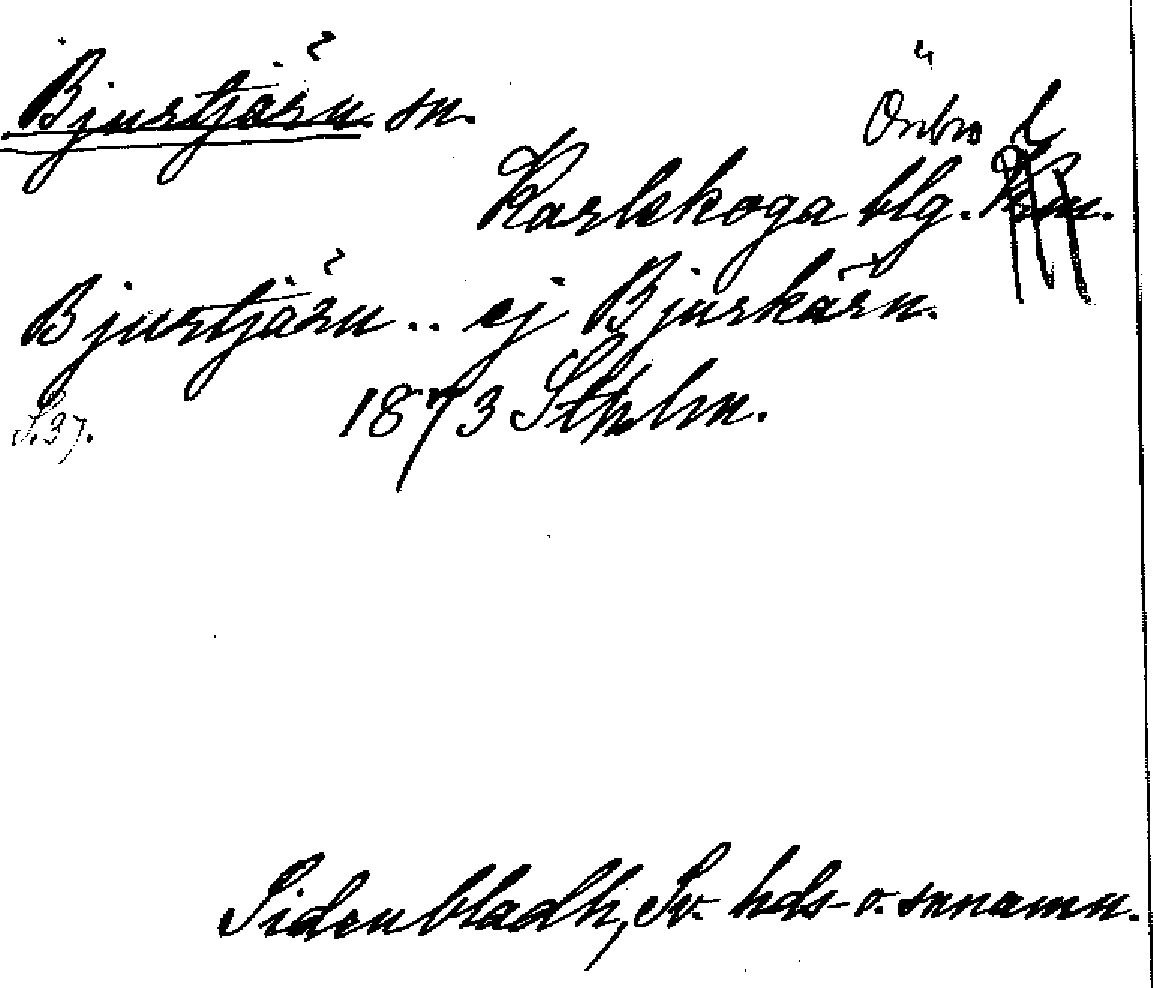 Bjurtjärn sn.
Örebro l
Karlskoga blg.
Bjurtjärn .. ej Bjurkärn.
S.37. 1873 Sthlm.
Sidenbladh, Sv. hds- o. snnamn.